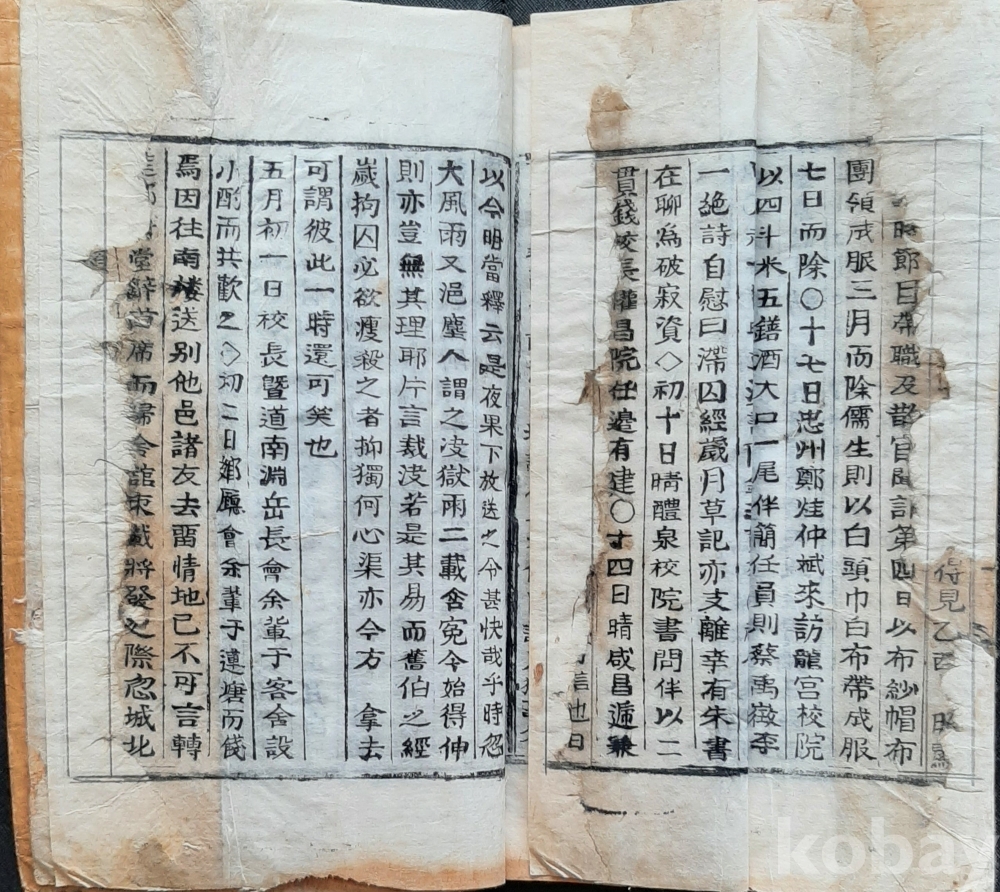 得見乙酉
時節日帶職及散官聞訃第四日以布紗帽布
團領成服三月而除儒生則以白頭巾白布帶成服
七日而除○十七日忠州鄭烓仲斌來訪龍宮校院
以四斗米五鐥酒大口一尾伴簡任員則蔡禹徵李
一絶詩自慰曰滯囚經歲月草記亦支離幸有朱書
在聊爲破寂資◇初十日晴醴泉校院書問伴以二
貫錢校長權昌院任邊有建○十四日晴咸昌遞兼
信也日
以今明當釋云是夜果下放送之令甚快哉乎時忽
大風雨又浥塵人謂之決獄雨二載含冤今始得伸
則亦豈無其理耶片言裁決若是其易而舊伯之經
歲拘囚必欲瘦殺之者抑獨何心渠亦今方 拿去
可謂彼此一時還可笑也
五月初一日校長曁道南淵岳長會余輩于客舍設
小酌而共歡之◇初二日鄕廳會余輩于蓮塘而餞
焉因往南樓送別他邑諸友去留情地已不可言轉
堂辭首席而歸舍館束裝將發之際忽城北
kobay